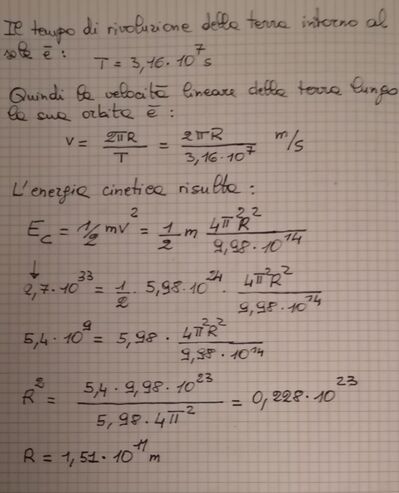 Il tempo di rivoluzione della terra intorno al
sole è:
T = 3,16 · 10⁷ s
Quindi la velocità lineare della terra lungo
la sua orbita è:
v = 2πR / T = 2πR / 3,16·10⁷ m/s
L'energia cinetica risulta:
E_C = 1/2 mv² = 1/2 m 4π²R² / 9,98·10¹⁴
↓
2,7·10³³ = 1/2 · 5,98·10²⁴ · 4π²R² / 9,98·10¹⁴
5,4·10⁹ = 5,98 · 4π²R² / 9,98·10¹⁴
R² = 5,4 · 9,98 · 10²³ / 5,98 · 4π² = 0,228·10²³
R = 1,51 · 10¹¹ m